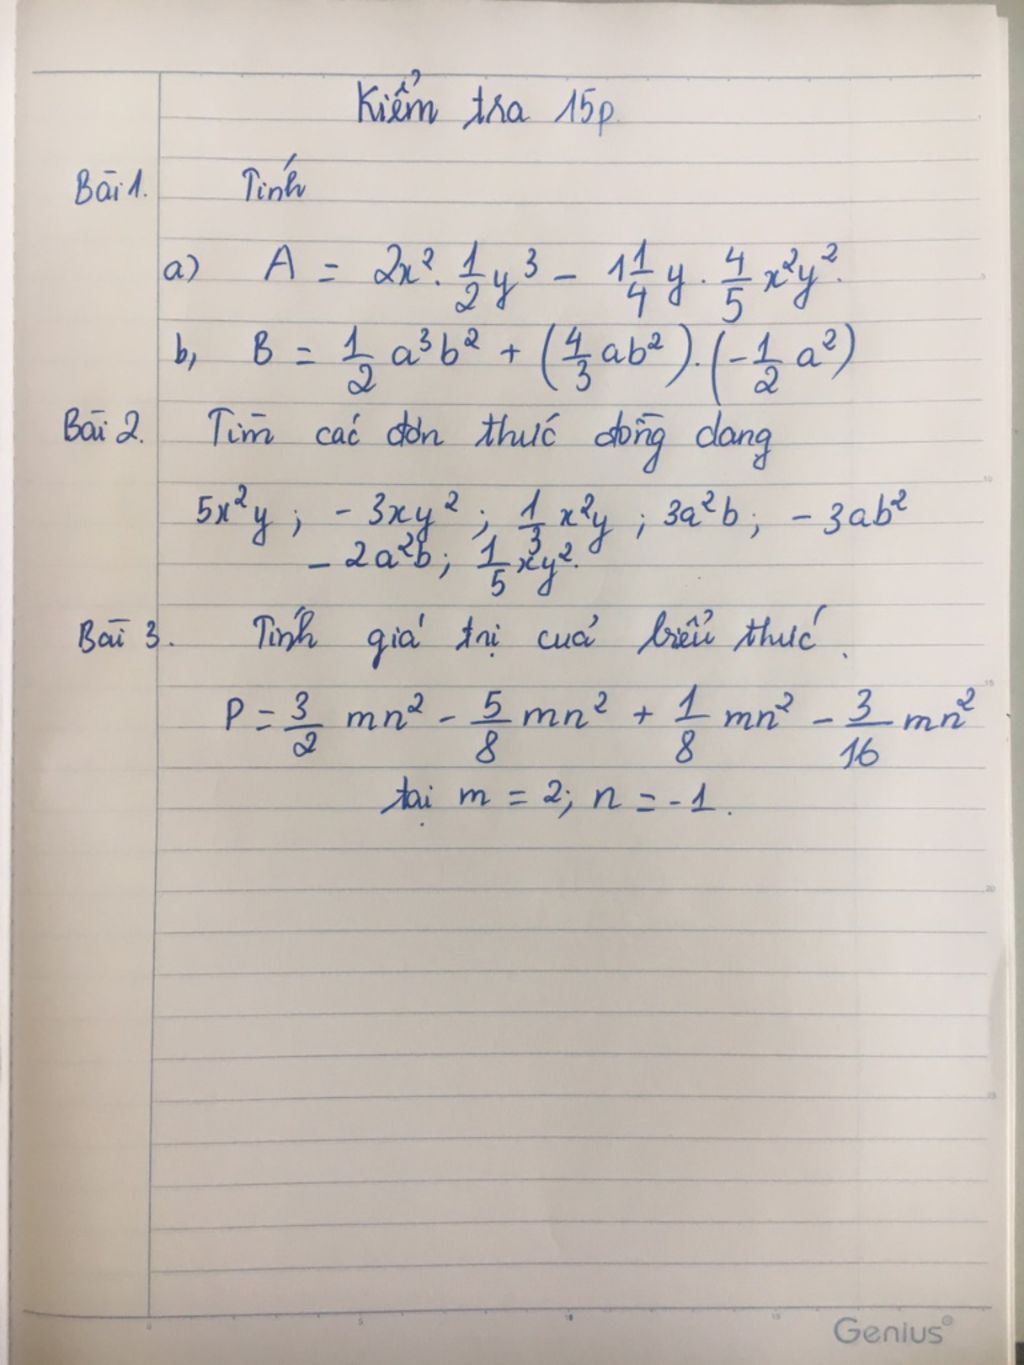 Kiểm tra 15p.
Bài 1. Tính
a) A = 2x². 1/2 y³ - 1 1/4 y . 4/5 x²y².
b, B = 1/2 a³b² + (4/3 ab²).(-1/2 a²)
Bài 2. Tìm các đơn thức đồng dang
5x²y ; - 3xy² ; 1/3 x²y ; 3a²b ; - 3ab²
- 2a²b ; 1/5 xy².
Bài 3. Tính giá trị của biểu thức.
P = 3/2 mn² - 5/8 mn² + 1/8 mn² - 3/16 mn²
tại m = 2; n = -1.
Genius®